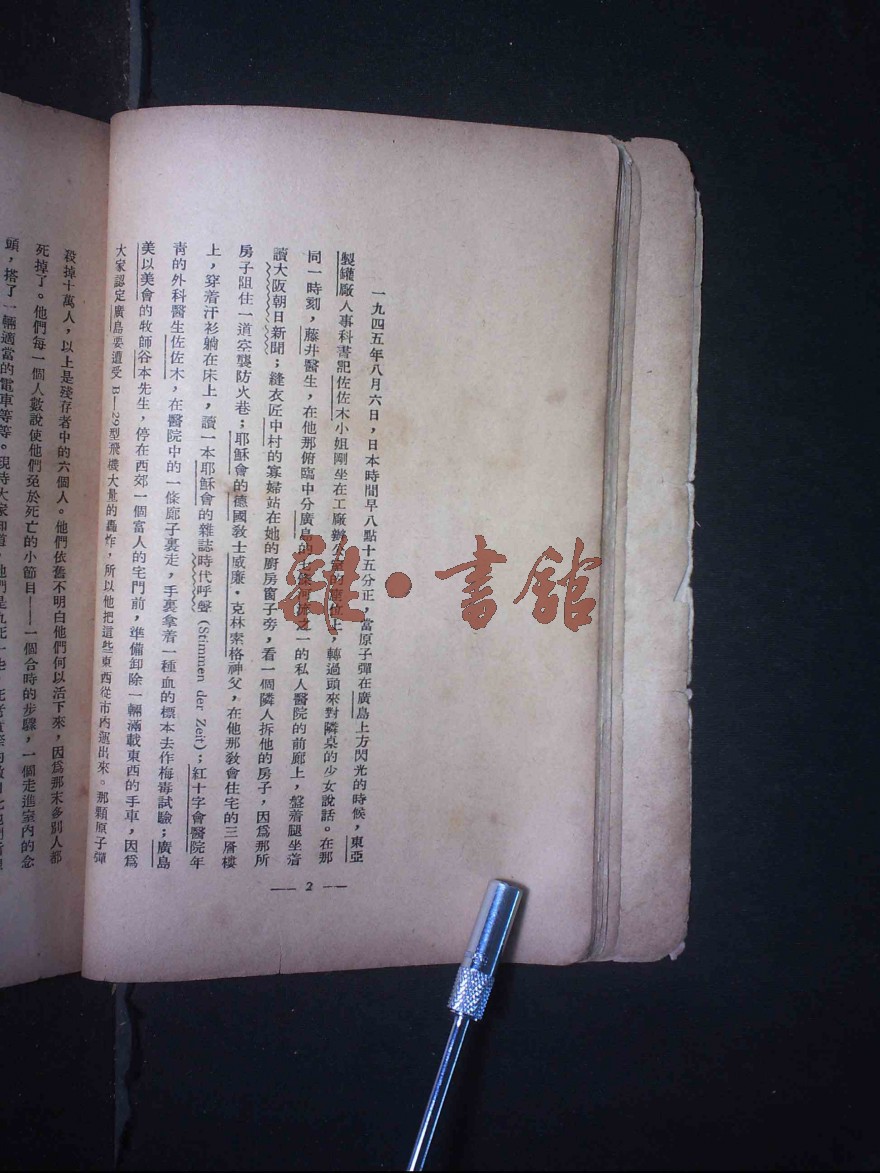 一九四五年八月六日，日本時間早八點十五分正，當原子彈在廣島上方閃光的時候，東亞
製罐廠人事科書記佐佐木小姐剛坐在工廠辦公室的座位上，轉過頭來對隣桌的少女說話。在那
同一時刻，藤井醫生，在他那俯臨中分廣島的七條河流之一的私人醫院的前廊上，盤着腿坐着
讀大阪朝日新聞；縫衣匠中村的寡婦站在她的廚房窗子旁，看一個隣人拆他的房子，因爲那所
房子阻住一道空襲防火巷；耶穌會的德國敎士威廉・克林索格神父，在他那敎會住宅的三層樓
上，穿着汗衫躺在床上，讀一本耶穌會的雜誌時代呼聲 (Stimmen der Zeit)；紅十字會醫院年
靑的外科醫生佐佐木，在醫院中的一條廊子裏走，手裏拿着一種血的標本去作梅毒試驗；廣島
美以美會的牧師谷本先生，停在西郊一個富人的宅門前，準備卸除一輛滿載東西的手車，因爲
大家認定廣島要遭受 B—29型飛機大量的轟炸，所以他把這些東西從市內運出來。那顆原子彈
殺掉十萬人，以上是殘存者中的六個人。他們依舊不明白他們何以活下來，因爲那末多別人都
死掉了。他們每一個人數說使他們免於死亡的小節目——一個合時的步驟，一個走進室內的念
頭，搭了一輛適當的電車等等。現時大家知道，他們是
— 2 —
雜・書館